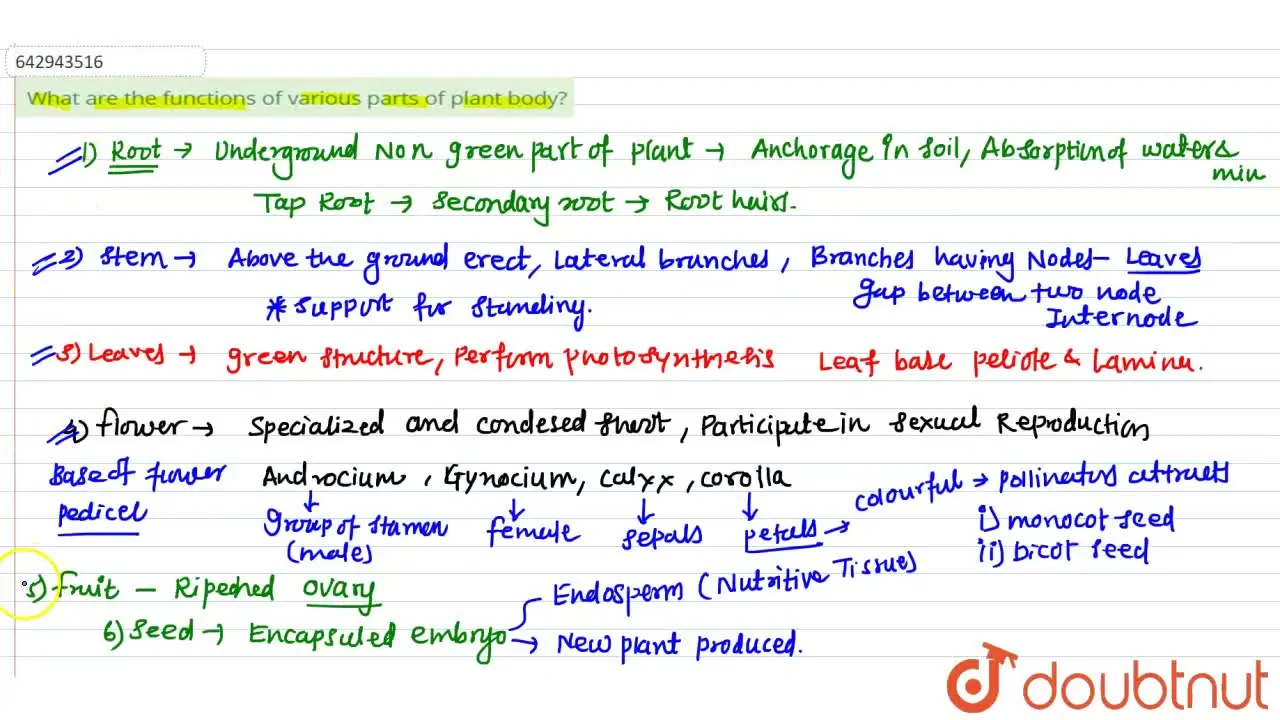 642943516
What are the functions of various parts of plant body?
1) Root → Underground Non green part of plant → Anchorage in soil, Absorption of water &
min
Tap Root → Secondary root → Root hairs.
2) Stem → Above the ground erect, Lateral branches, Branches having Nodes - Leaves
gap between two node
* Support for standing.
Internode
3) Leaves → green structure, Perform photosynthesis Leaf base petiole & Lamina.
4) flower → Specialized and condesed shoot, Participate in Sexual Reproduction
Base of flower Androcium, Gynocium, Calyx, corolla colourful → pollinators attracts
pedicel group of stamen female sepals petals → i) monocot seed
(males) ii) Dicot seed
5) fruit – Ripened ovary Endosperm (Nutritive Tissues
6) Seed → Encapsuled embryo → New plant produced.
doubtnut